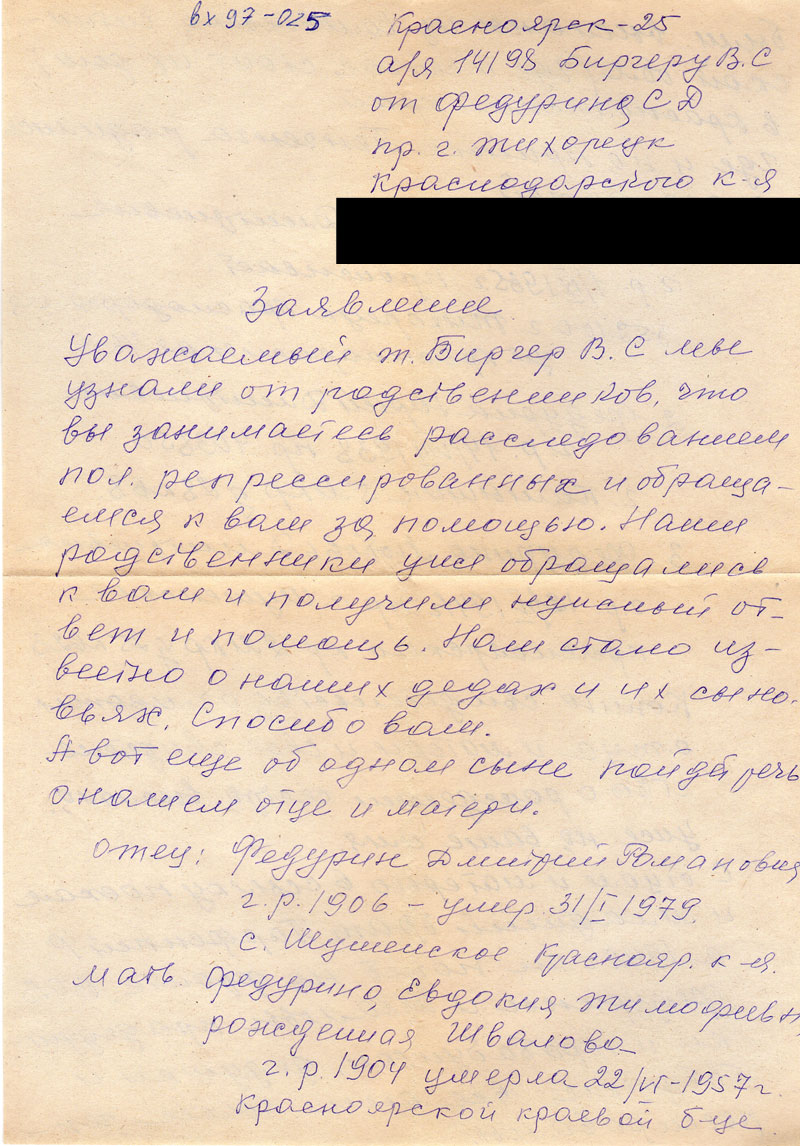 вх 97-025
Красноярск-25
а/я 14198 Биргеру В.С
от Федурина С Д
пр. г. Тихорецк
Краснодарского к-я
Заявление
Уважаемый т. Биргер В. С мы
узнали от родственников, что
вы занимаетесь расследованием
пол. репрессированных и обраща-
емся к вам за помощью. Наши
родственники уже обращались
к вам и получили нужный от-
вет и помощь. Нам стало из-
вестно о наших дедах и их сыно-
вьях. Спосибо вам.
А вот еще об одном сыне пойдет речь
о нашем отце и матери.
Отец: Федурин Дмитрий Романович
г. р. 1906 - умер 31/I 1979.
с. Шушенское Краснояр. к-я.
Мать. Федурина, Евдокия Тимофеевн
рожденная Швалова
г. р. 1904 умерла 22/VI-1957 г.
Красноярской краевой б-це